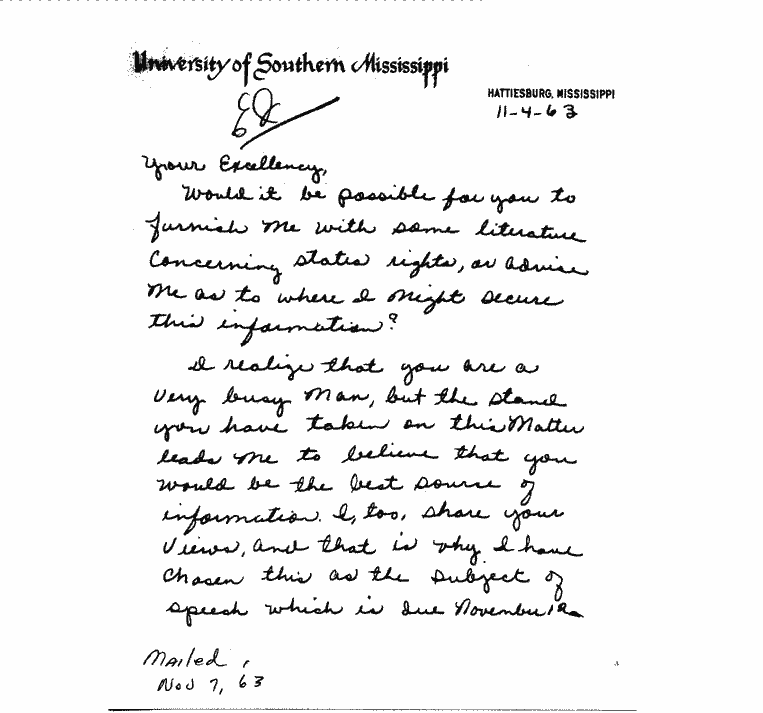 University of Southern Mississippi
HATTIESBURG, MISSISSIPPI
11-4-63
Your Excellency,
Would it be possible for you to
furnish me with some literature
concerning states rights, or advise
me as to where I might secure
this information?
I realize that you are a
very busy man, but the stand
you have taken on this matter
leads me to believe that you
would be the best source of
information. I, too, share your
views, and that is why I have
chosen this as the subject of
speech which is due November
Mailed
Nov 7, 63